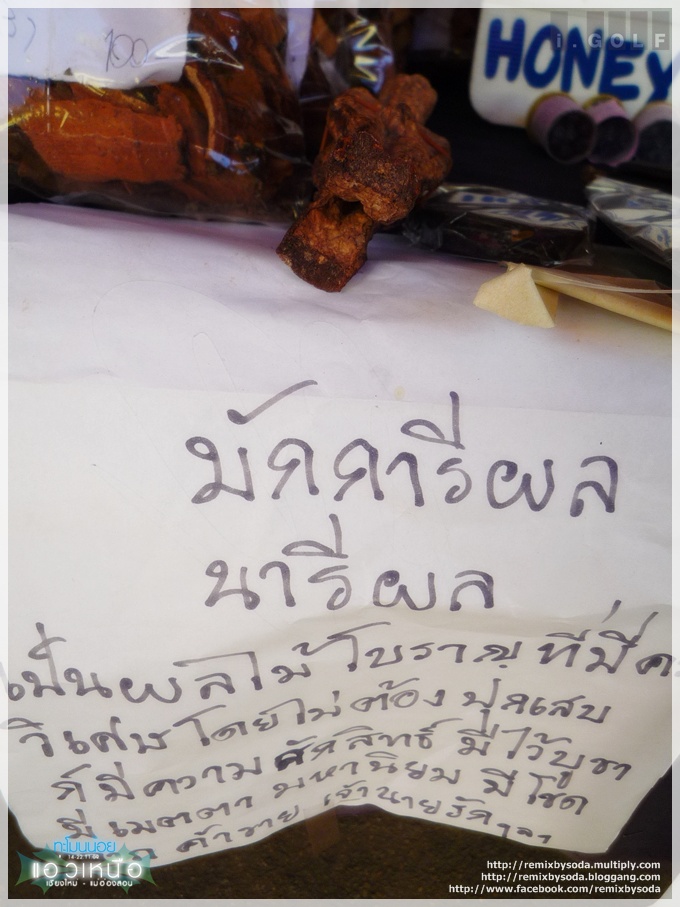 100
HONEY
i.GOLF
มักการีผล
นารีผล
เป็นผลไม้โบราญที่มีค
วิเศษโดยไม่ต้องปุกเสบ
ก็มีความศักสิทธิ์ มีไว้บูชา
มีเมตตา มหานิยม มีโชค
ค้าขาย เจ้านายรัก
ทะโมนน้อย
14-22.11.09
แอ่วเหนือ
เชียงใหม่ - แม่ฮ่องสอน
http://remixbysoda.multiply.com
http://remixbysoda.bloggang.com
http://www.facebook.com/remixbysoda